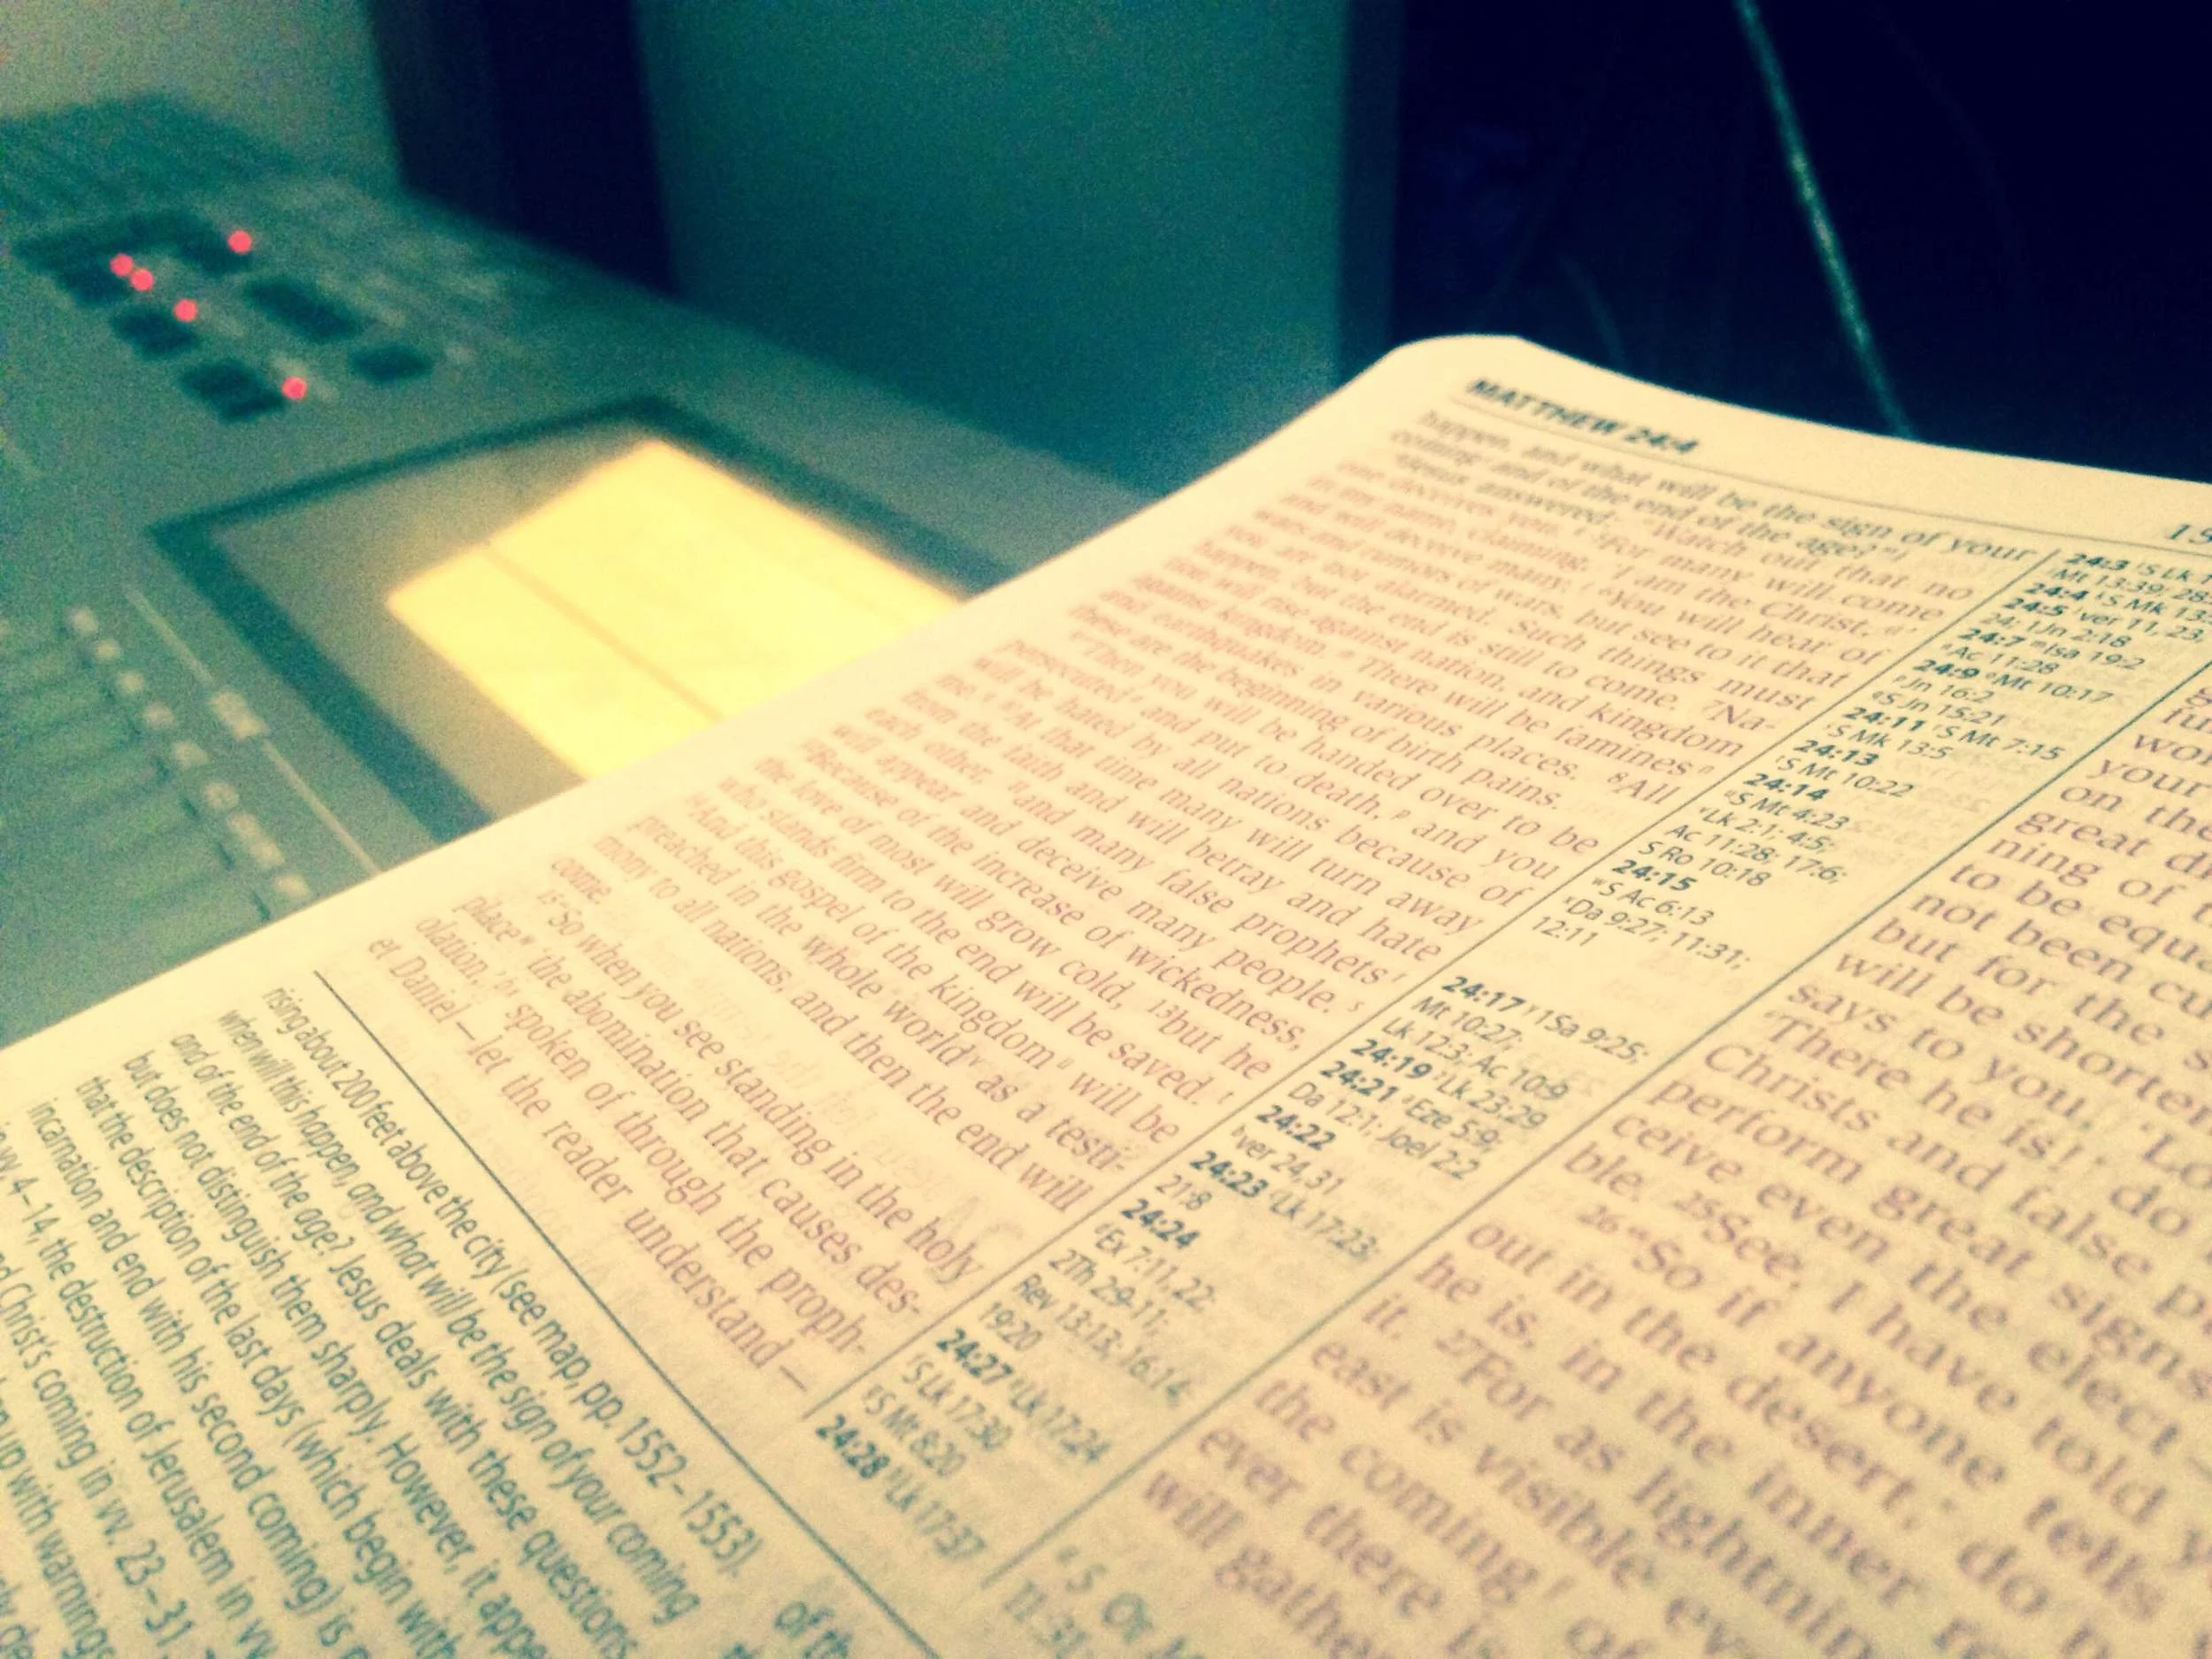 MATTHEW 24:4
happen, and what will be the sign of your
coming and of the end of the age?"
Jesus answered: "Watch out that no
one deceives you. 5For many will come
in my name, claiming, 'I am the Christ,'
and will deceive many. 6You will hear of
wars and rumors of wars, but see to it that
you are not alarmed. Such things must
happen, but the end is still to come. 7Na-
tion will rise against nation, and kingdom
against kingdom. There will be famines
and earthquakes in various places. 8All
these are the beginning of birth pains.
9"Then you will be handed over to be
persecuted and put to death, p and you
will be hated by all nations because of
me. 10At that time many will turn away
from the faith and will betray and hate
each other, 11and many false prophets r
will appear and deceive many people. s
12Because of the increase of wickedness,
the love of most will grow cold, 13but he
who stands firm to the end will be saved. t
14And this gospel of the kingdom u will be
preached in the whole world v as a testi-
mony to all nations, and then the end will
come.
15"So when you see standing in the holy
place w 'the abomination that causes des-
olation,' spoken of through the proph-
et Daniel—let the reader understand—
24:3
Mt 13:39; 28:
24:4 S Mk 13:
24:5 ver 11, 23,
24; 1Jn 2:18
24:7 m Isa 19:2
n Ac 11:28
24:9 o Mt 10:17
p Jn 16:2
q S Jn 15:21
24:11 r S Mt 7:15
s S Mk 13:5
24:13
t S Mt 10:22
24:14
u S Mt 4:23
v Lk 2:1; 4:5;
Ac 11:28; 17:6;
S Ro 10:18
24:15
w S Ac 6:13
x Da 9:27; 11:31;
12:11
24:17 y 1Sa 9:25;
Mt 10:27;
Lk 12:3; Ac 10:9
24:19 z Lk 23:29
24:21 a Eze 5:9;
Da 12:1; Joel 2:2
24:22
b ver 24,31
24:23 c Lk 17:23;
21:8
24:24
Ex 7:11,22;
2Th 2:9-11;
Rev 13:13; 16:14;
19:20
24:27 Lk 17:24
f S Lk 17:30
g S Mt 8:20
24:28 h Lk 17:37
your
on the
great
ning of
to be equa
not been cu
but for the s
will be shorte
says to you,
'There he is!' do
Christs and false p
perform great signs
ceive even the elect—
ble. 25See, I have told y
26"So if anyone tells
out in the desert,' do n
he is, in the inner
it. 27For as lightnin
east is visible ev
the coming of
ever there is
will gather
rising about 200 feet above the city (see map, pp. 1552–1553).
when will this happen, and what will be the sign of your coming
and of the end of the age? Jesus deals with these questions
but does not distinguish them sharply. However, it appe
that the description of the last days (which begin with
incarnation and end with his second coming) is
in vv. 4–14, the destruction of Jerusalem in vv
Christ's coming in vv. 23–31.
up with warnings
of th